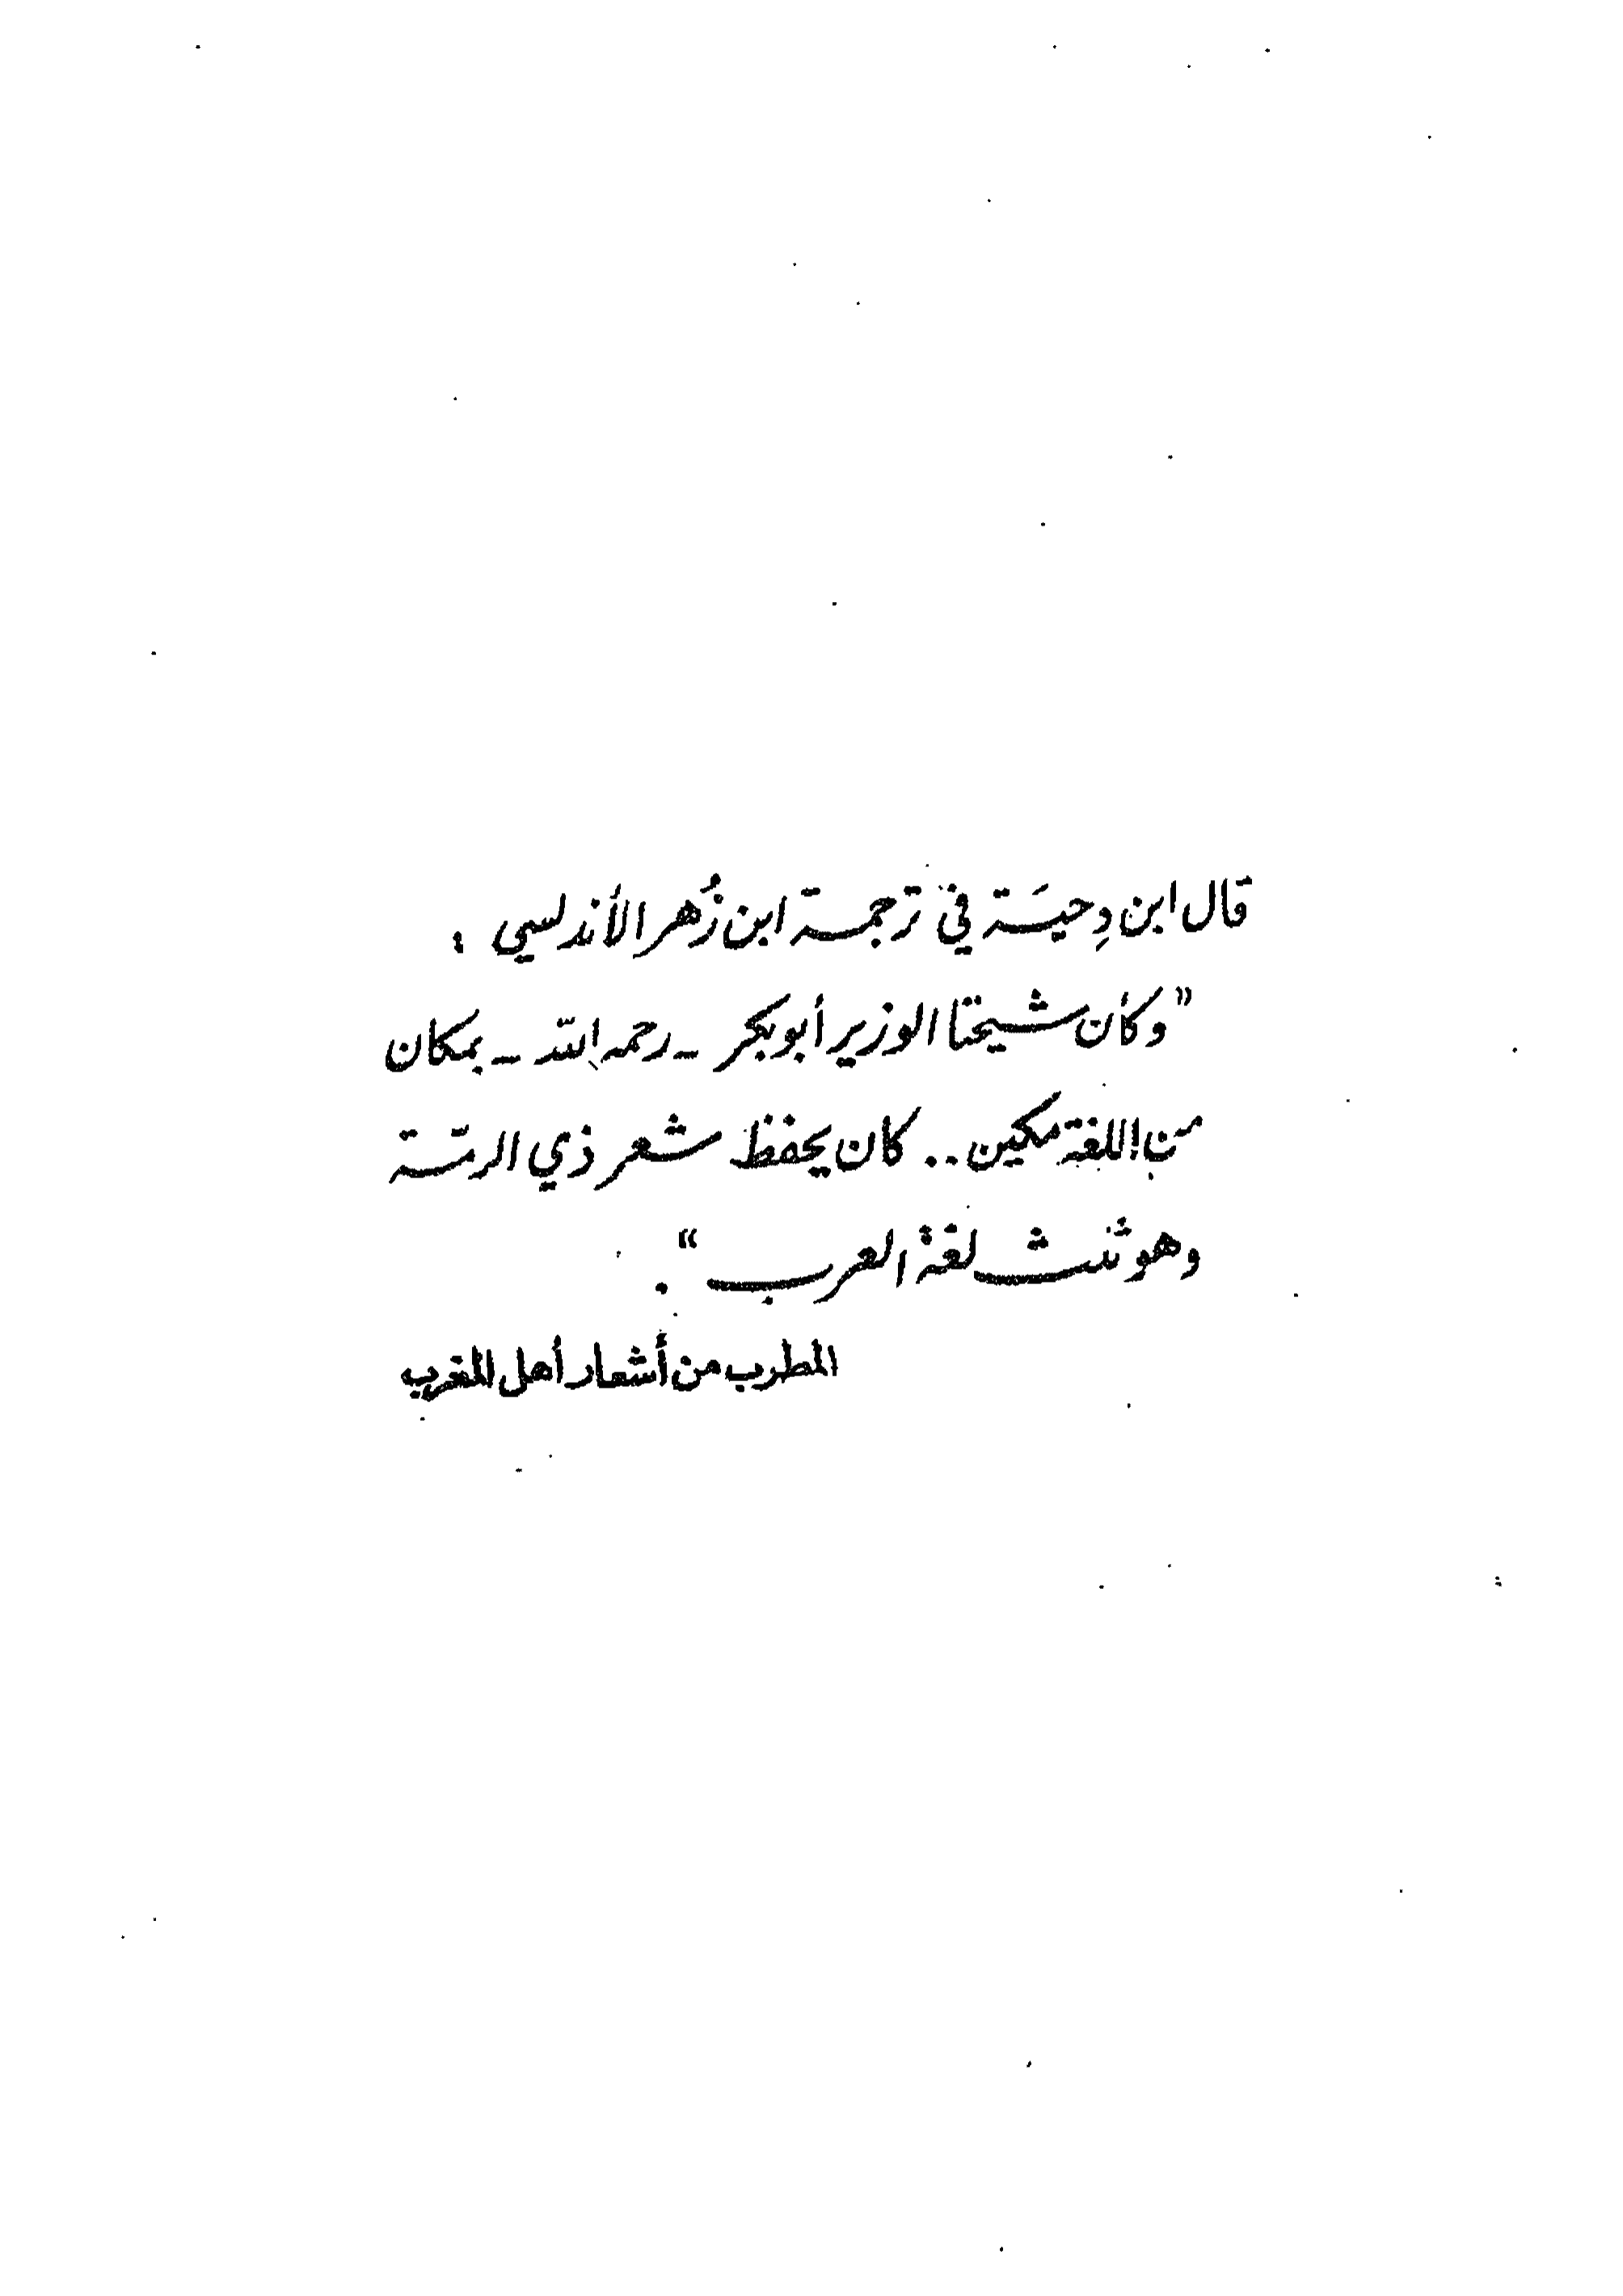 قال ابن دِحيَة في ترجمة ابن زُهر الأندلسي :
"وكان شيخنا الوزير أبو بكر - رحمه الله - بمكان
من اللغة مكين .. كان يحفظ شعر ذي الرمّة
وهو ثلث لغة العرب " .
المطرب من أشعار أهل المغرب